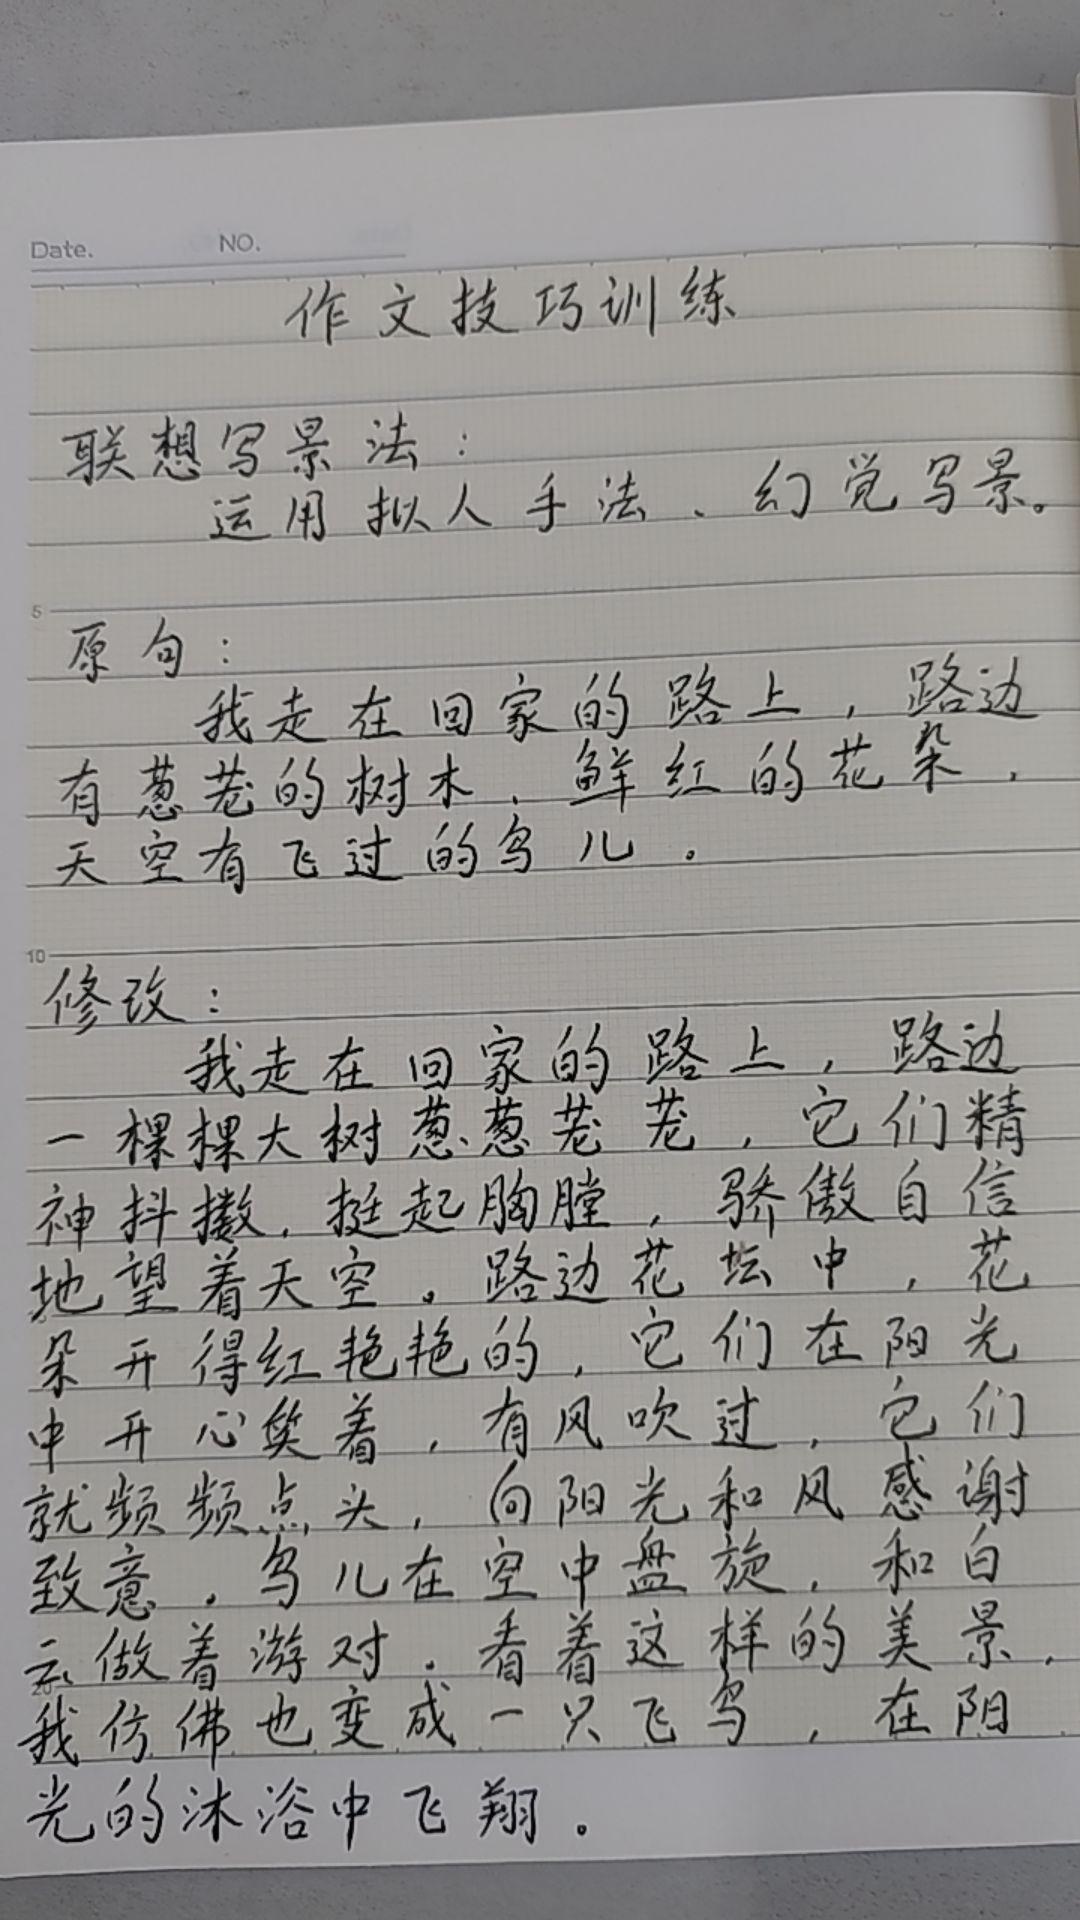 Date. NO.
作文技巧训练
联想写景法：
运用拟人手法、幻觉写景。
5
原句：
我走在回家的路上，路边
有葱茏的树木、鲜红的花朵，
天空有飞过的鸟儿。
10
修改：
我走在回家的路上，路边
一棵棵大树葱葱茏茏，它们精
神抖擞，挺起胸膛，骄傲自信
地望着天空。路边花坛中，花
朵开得红艳艳的，它们在阳光
中开心笑着，有风吹过，它们
就频频点头，向阳光和风感谢
致意。鸟儿在空中盘旋，和白
云做着游对。看着这样的美景，
我仿佛也变成一只飞鸟，在阳
光的沐浴中飞翔。